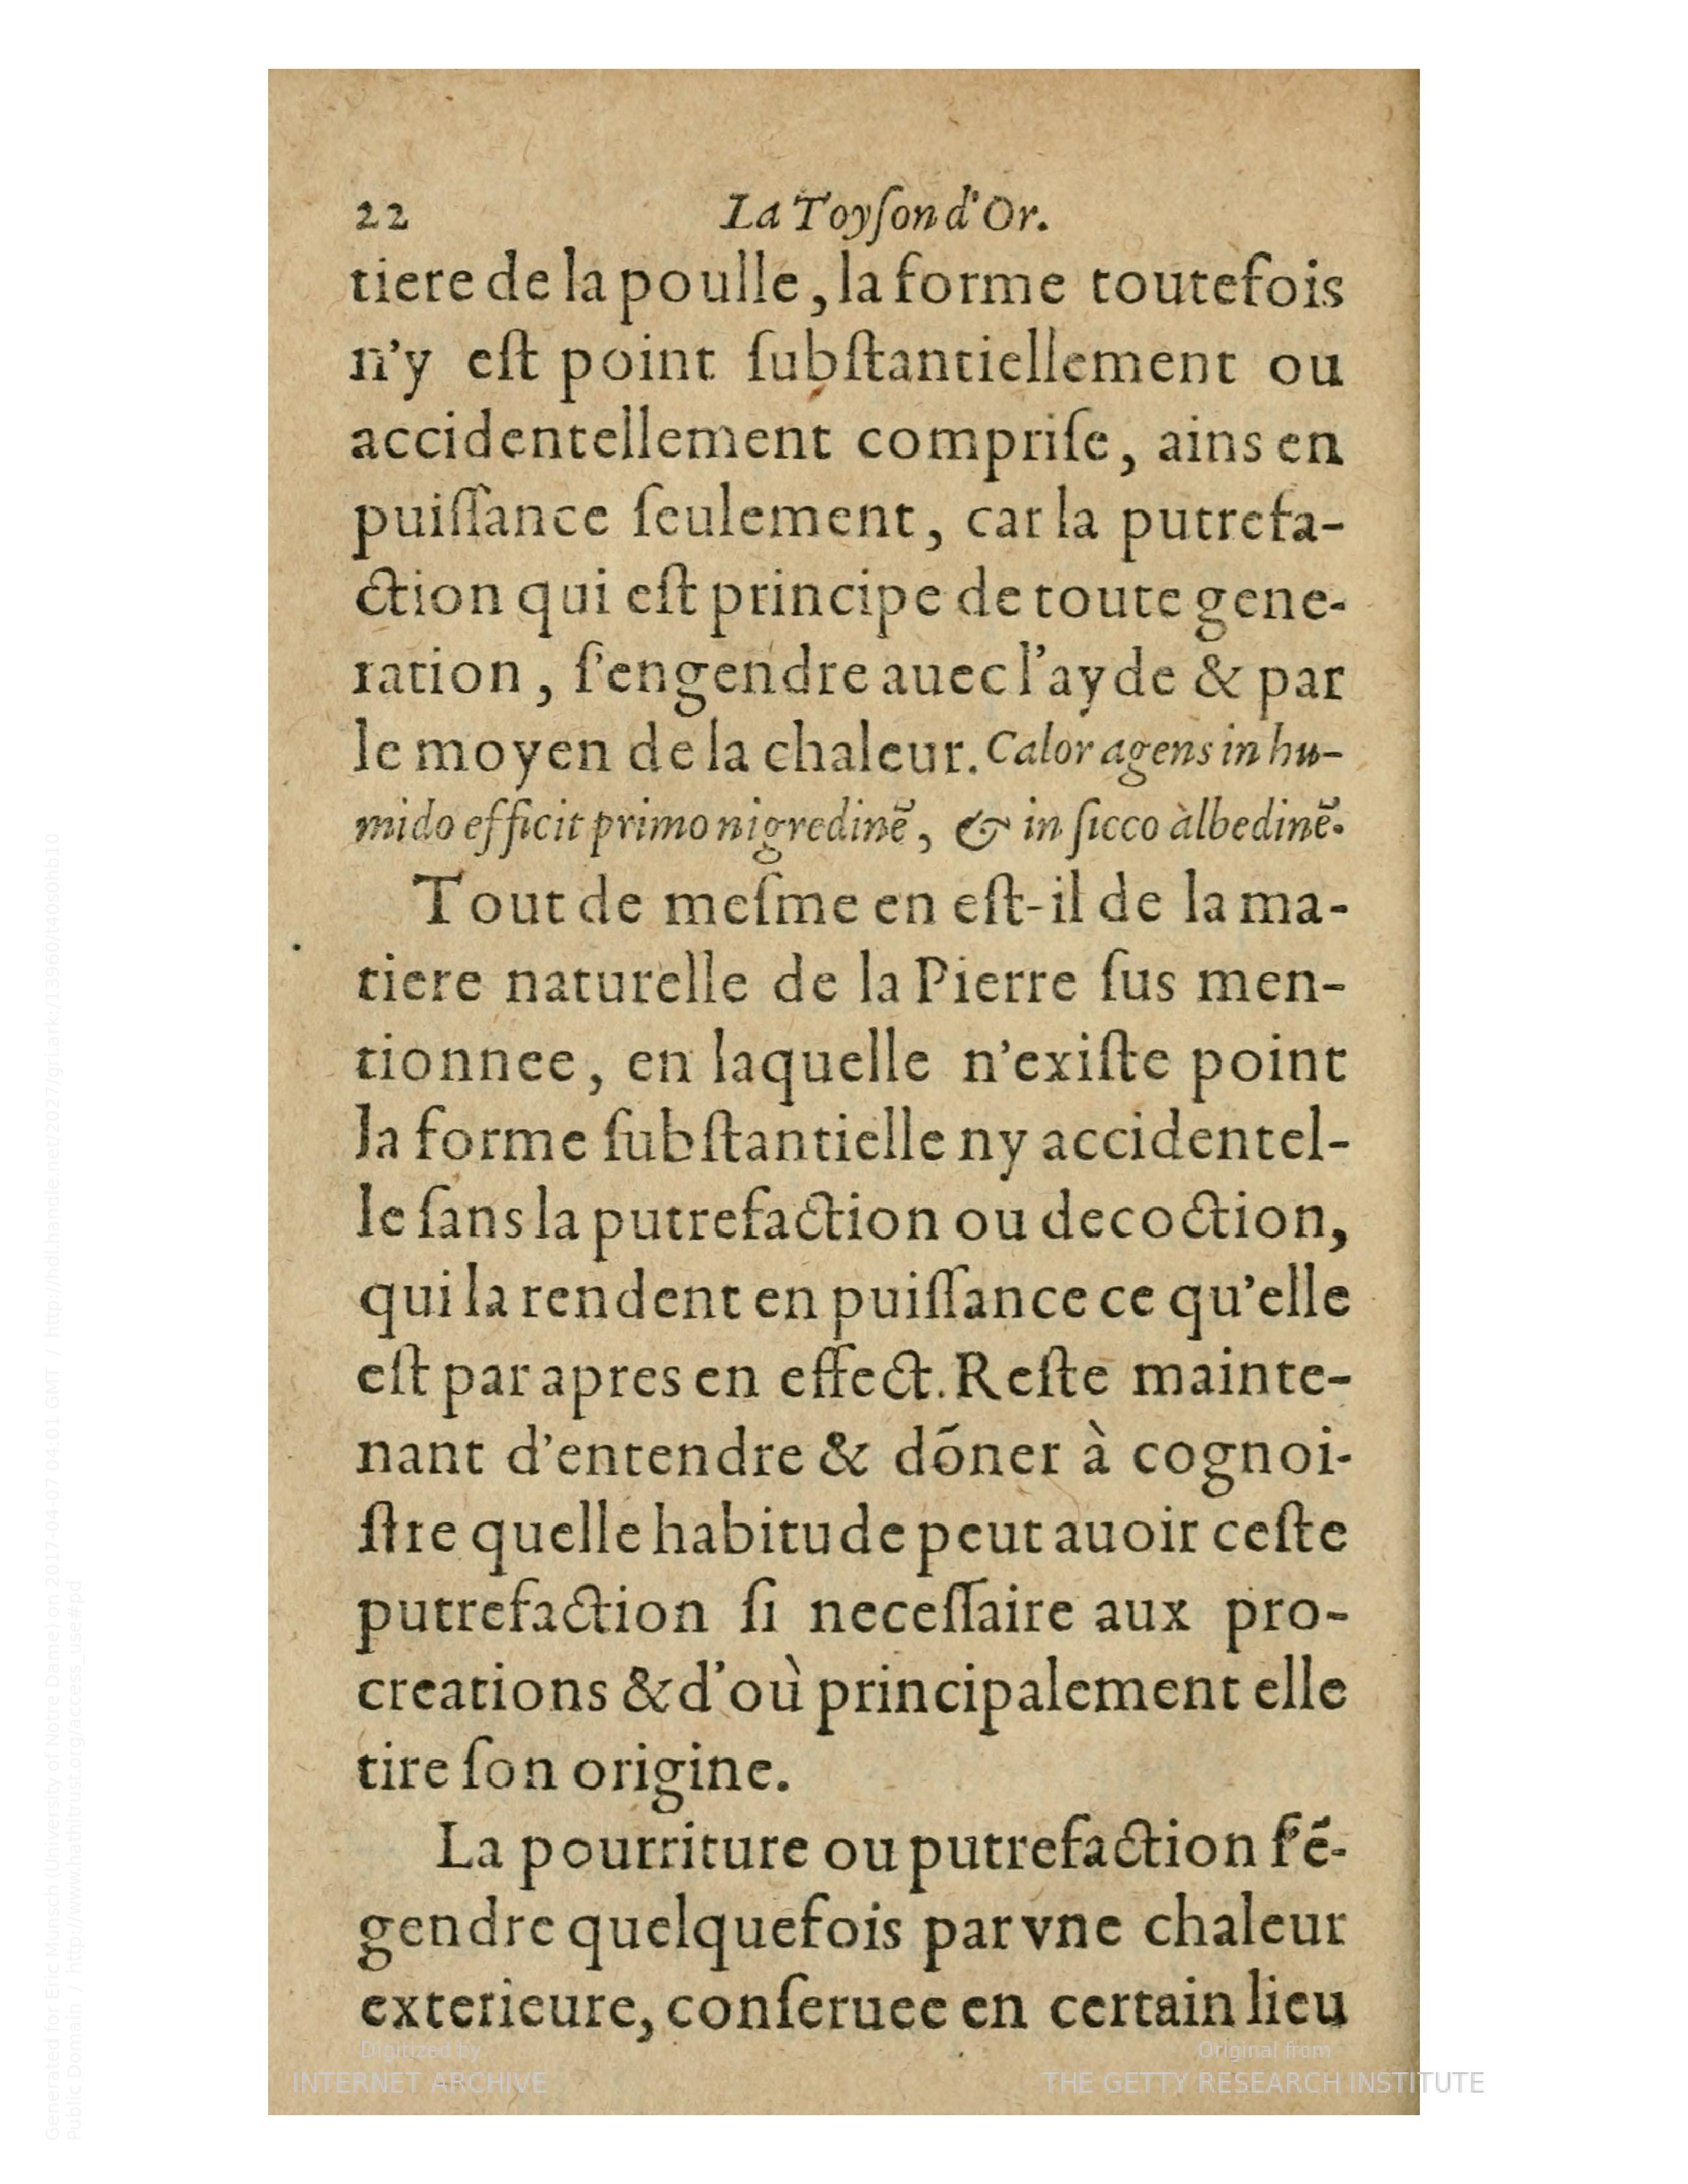 22 La Toyſon d'Or.
tiere de la poulle, la forme toutefois
n'y eſt point ſubſtantiellement ou
accidentellement compriſe, ains en
puiſſance ſeulement, car la putrefa-
ction qui eſt principe de toute gene-
ration, ſ'engendre auec l'ayde & par
le moyen de la chaleur. Calor agens in hu-
mido efficit primo nigredinē, & in ſicco àlbedinē.
Tout de meſme en eſt-il de la ma-
tiere naturelle de la Pierre ſus men-
tionnee, en laquelle n'exiſte point
la forme ſubſtantielle ny accidentel-
le ſans la putrefaction ou decoction,
qui la rendent en puiſſance ce qu'elle
eſt par apres en effect. Reſte mainte-
nant d'entendre & dõner à cognoi-
ſtre quelle habitude peut auoir ceſte
putrefaction ſi neceſſaire aux pro-
creations & d'où principalement elle
tire ſon origine.
La pourriture ou putrefaction ſ'ẽ-
gendre quelquefois par vne chaleur
exterieure, conſeruee en certain lieu
Digitized by
INTERNET ARCHIVE
Original from
THE GETTY RESEARCH INSTITUTE
Generated for Eric Munsch (University of Notre Dame) on 2017-04-07 04:01 GMT / http://hdl.handle.net/2027/gri.ark:/13960/t40s0hb10
Public Domain / http://www.hathitrust.org/access_use#pd